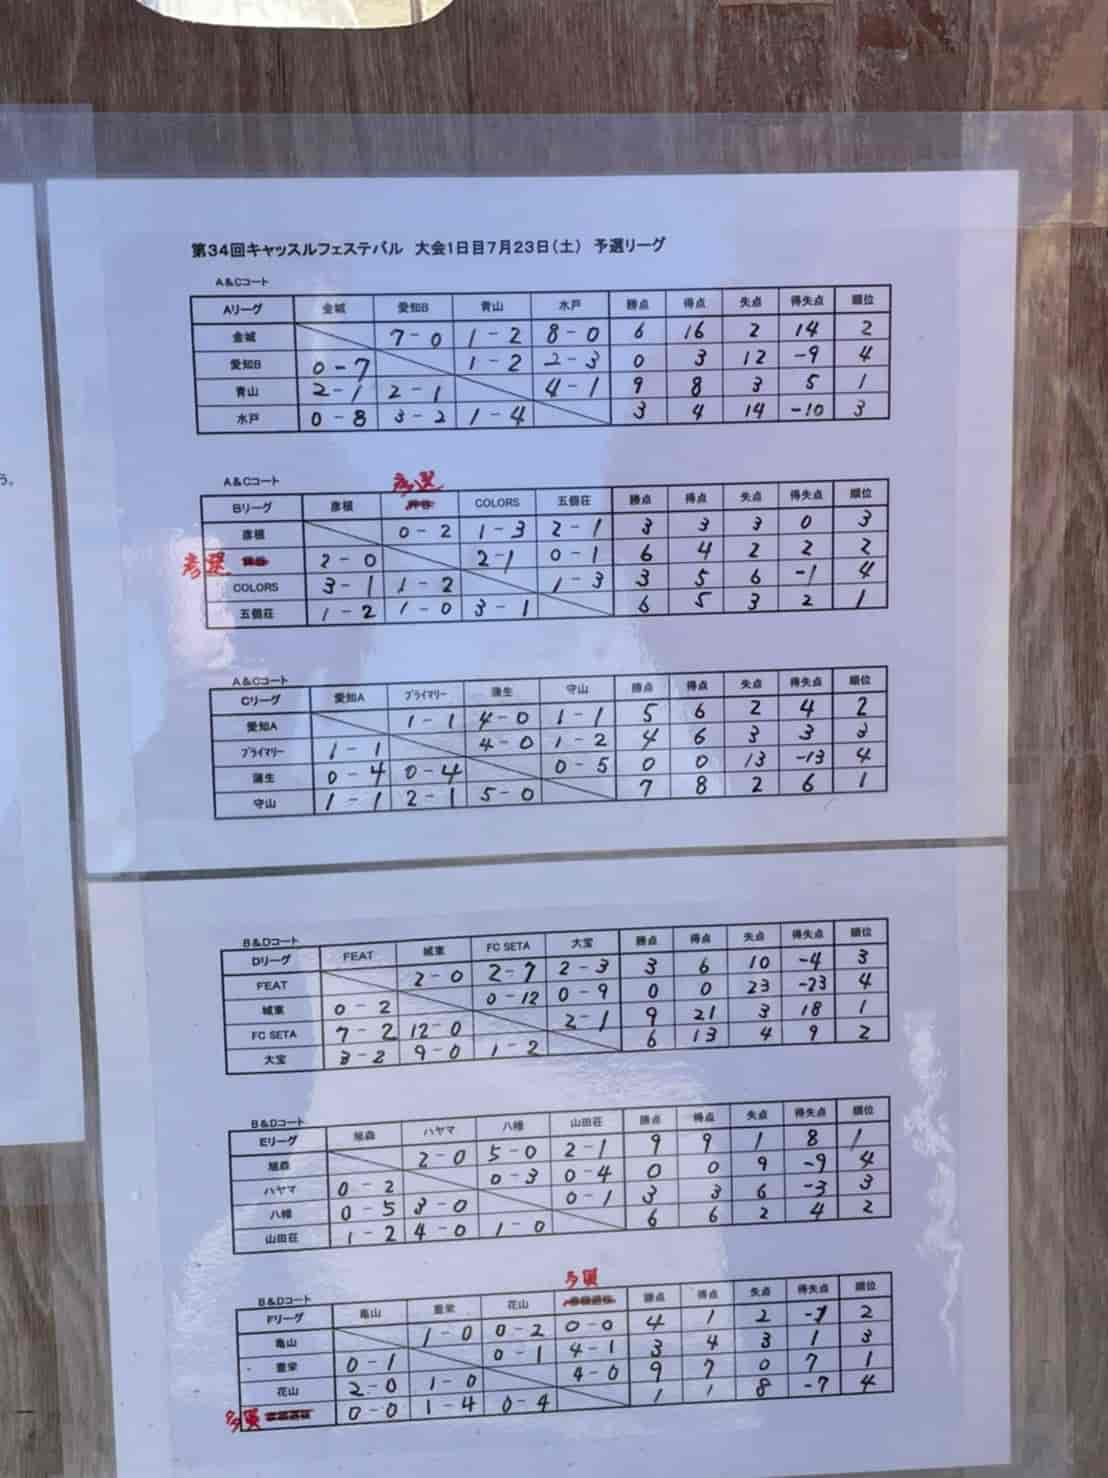 う。
第34回キャッスルフェステバル 大会1日目7月23日(土) 予選リーグ
A&Cコート
Aリーグ 金城 愛知B 青山 水戸 勝点 得点 失点 得失点 順位
金城 7-0 1-2 8-0 6 16 2 14 2
愛知B 0-7 1-2 2-3 0 3 12 -9 4
青山 2-1 2-1 4-1 9 8 3 5 1
水戸 0-8 3-2 1-4 3 4 14 -10 3
A&Cコート
選
Bリーグ 彦根 COLORS 五個荘 勝点 得点 失点 得失点 順位
彦根 0-2 1-3 2-1 3 3 3 0 3
選 2-0 2-1 0-1 6 4 2 2 2
COLORS 3-1 1-2 1-3 3 5 6 -1 4
五個荘 1-2 1-0 3-1 6 5 3 2 1
A&Cコート
Cリーグ 愛知A プライマリー 蒲生 守山 勝点 得点 失点 得失点 順位
愛知A 1-1 4-0 1-1 5 6 2 4 2
プライマリー 1-1 4-0 1-2 4 6 3 3 3
蒲生 0-4 0-4 0-5 0 0 13 -13 4
守山 1-1 2-1 5-0 7 8 2 6 1
B&Dコート
Dリーグ FEAT 城東 FC SETA 大宝 勝点 得点 失点 得失点 順位
FEAT 2-0 2-7 2-3 3 6 10 -4 3
城東 0-2 0-12 0-9 0 0 23 -23 4
FC SETA 7-2 12-0 2-1 9 21 3 18 1
大宝 3-2 9-0 1-2 6 13 4 9 2
B&Dコート
Eリーグ 旭森 ハヤマ 八幡 山田荘 勝点 得点 失点 得失点 順位
旭森 2-0 5-0 2-1 9 9 1 8 1
ハヤマ 0-2 0-3 0-4 0 0 9 -9 4
八幡 0-5 3-0 0-1 3 3 6 -3 3
山田荘 1-2 4-0 1-0 6 6 2 4 2
多賀
B&Dコート
Fリーグ 亀山 豊栄 花山 勝点 得点 失点 得失点 順位
亀山 1-0 0-2 0-0 4 1 2 -1 2
豊栄 0-1 0-1 4-1 3 4 3 1 3
花山 2-0 1-0 4-0 9 7 0 7 1
多賀 0-0 1-4 0-4 1 1 8 -7 4